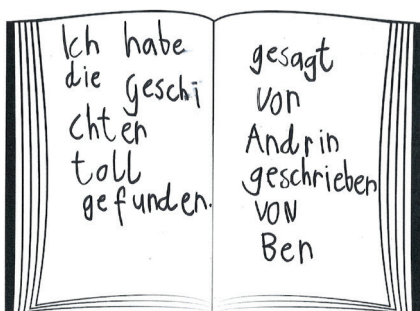 Ich habe
die Geschi
chten
toll
gefunden.
gesagt
von
Andrin
geschrieben
von
Ben